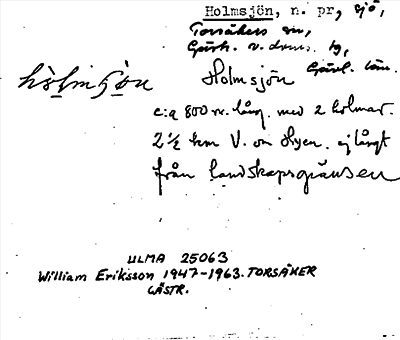 Holmsjön, n. pr, sjö,
Torsåkers sn,
Gästr. v. doms. tg,
Gävl. län.
hòlmʃön Holmsjön
c:a 800 m. lång. med 2 holmar.
2 ½ km V. om Hyen. ej långt
från landskapsgränsen
ULMA 25063
William Eriksson 1947-1963. TORSÅKER
GÄSTR.